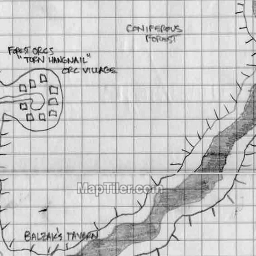 CONIFEROUS
FOREST
FOREST ORCS
"TORN HANGNAIL"
ORC VILLAGE
MapTiler.com
BALZAK'S TAVERN